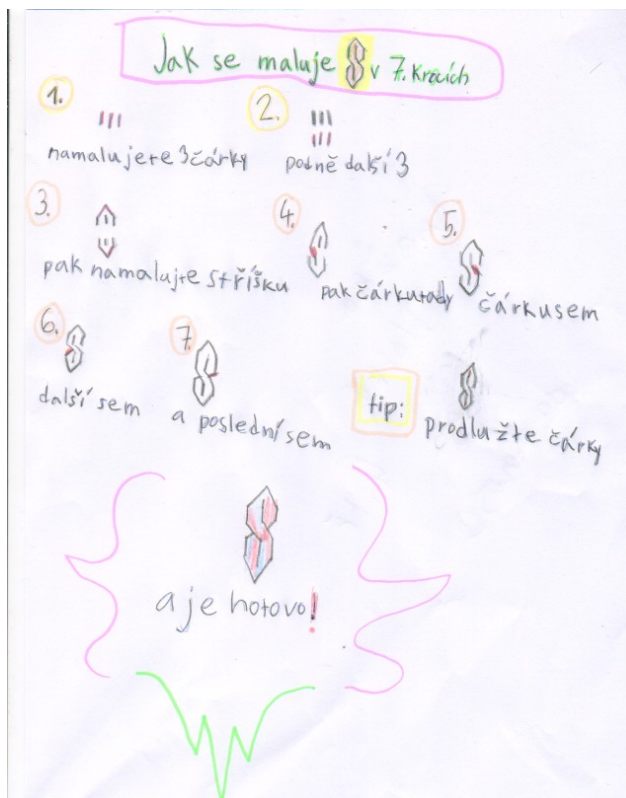 Jak se maluje S v 7. krocích
1. 2.
namalujete 3 čárky podně další 3
3. 4. 5.
pak namalujte stříšku pak čárku tady čárku sem
6. 7.
další sem a poslední sem tip: prodlužte čárky
a je hotovo!